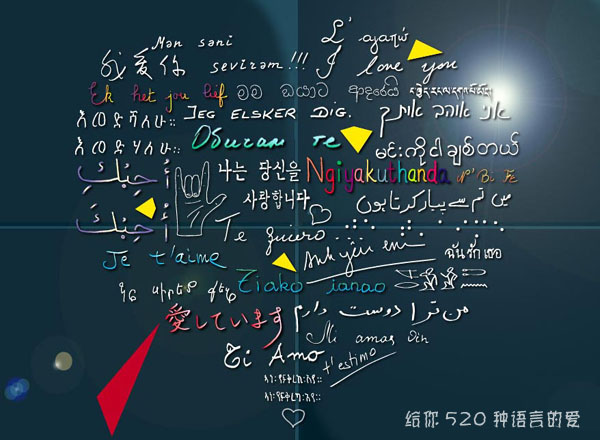 Mən səni sevirəm!!!
我爱你
I love you
Ek het jou lief
මම ඔයාට ආදරෙයි
JEG ELSKER DIG.
אני אוהב אותך
Oburam te
မင်းကိုငါချစ်တယ်
أُحِبُّكِ
나는 당신을
사랑합니다
Ngiyakuthanda
أُحِبُّكَ
Te quiero
میں تم سے پیار کرتا ہوں
Je t'aime
Anh yêu em
ฉันรักเธอ
Tiako ianao
愛しています
من ترا دوست دارم
Mi amas vin
Ti Amo
t'estimo
给你 520 种语言的爱